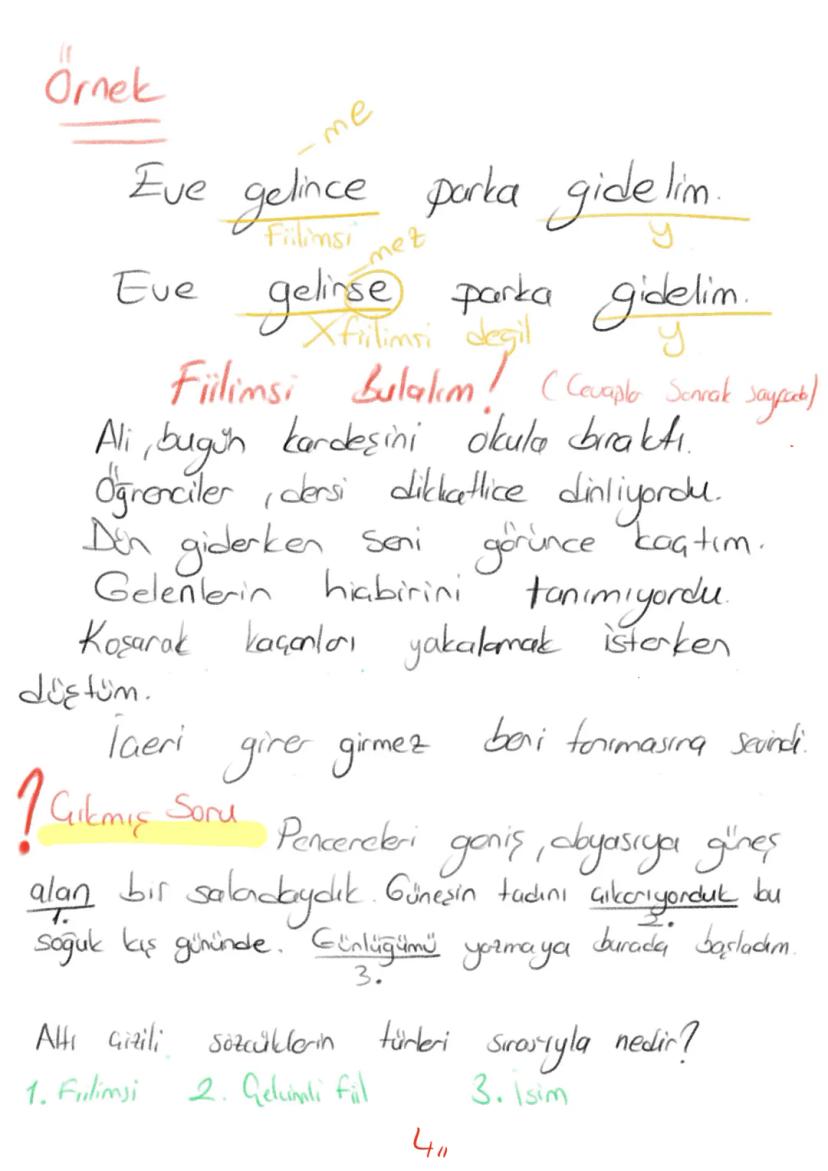 Örnek
- me
Eve gelince parka gidelim.
Fiilimsi y
- mez
Eve gelirse parka gidelim.
X fiilimsi değil y
Fiilimsi Bulalım! (Cevaplar Sonrak sayfada)
Ali, bugün kardeşini okula bıraktı.
Öğrenciler, dersi dikkatlice dinliyordu.
Dün giderken seni görünce kaçtım.
Gelenlerin hiçbirini tanımıyordu.
Koşarak kaçanları yakalamak isterken
düştüm.
İçeri girer girmez beni tanımasına sevindi.
? Çıkmış Soru
Pencereleri geniş, doyasıya güneş
alan bir salondaydık. Güneşin tadını çıkarıyorduk bu
1. 2.
soğuk kış gününde. Günlüğümü yazmaya burada başladım.
3.
Altı çizili sözcüklerin türleri sırasıyla nedir?
1. Fiilimsi 2. Çekimli fiil 3. İsim
4,,